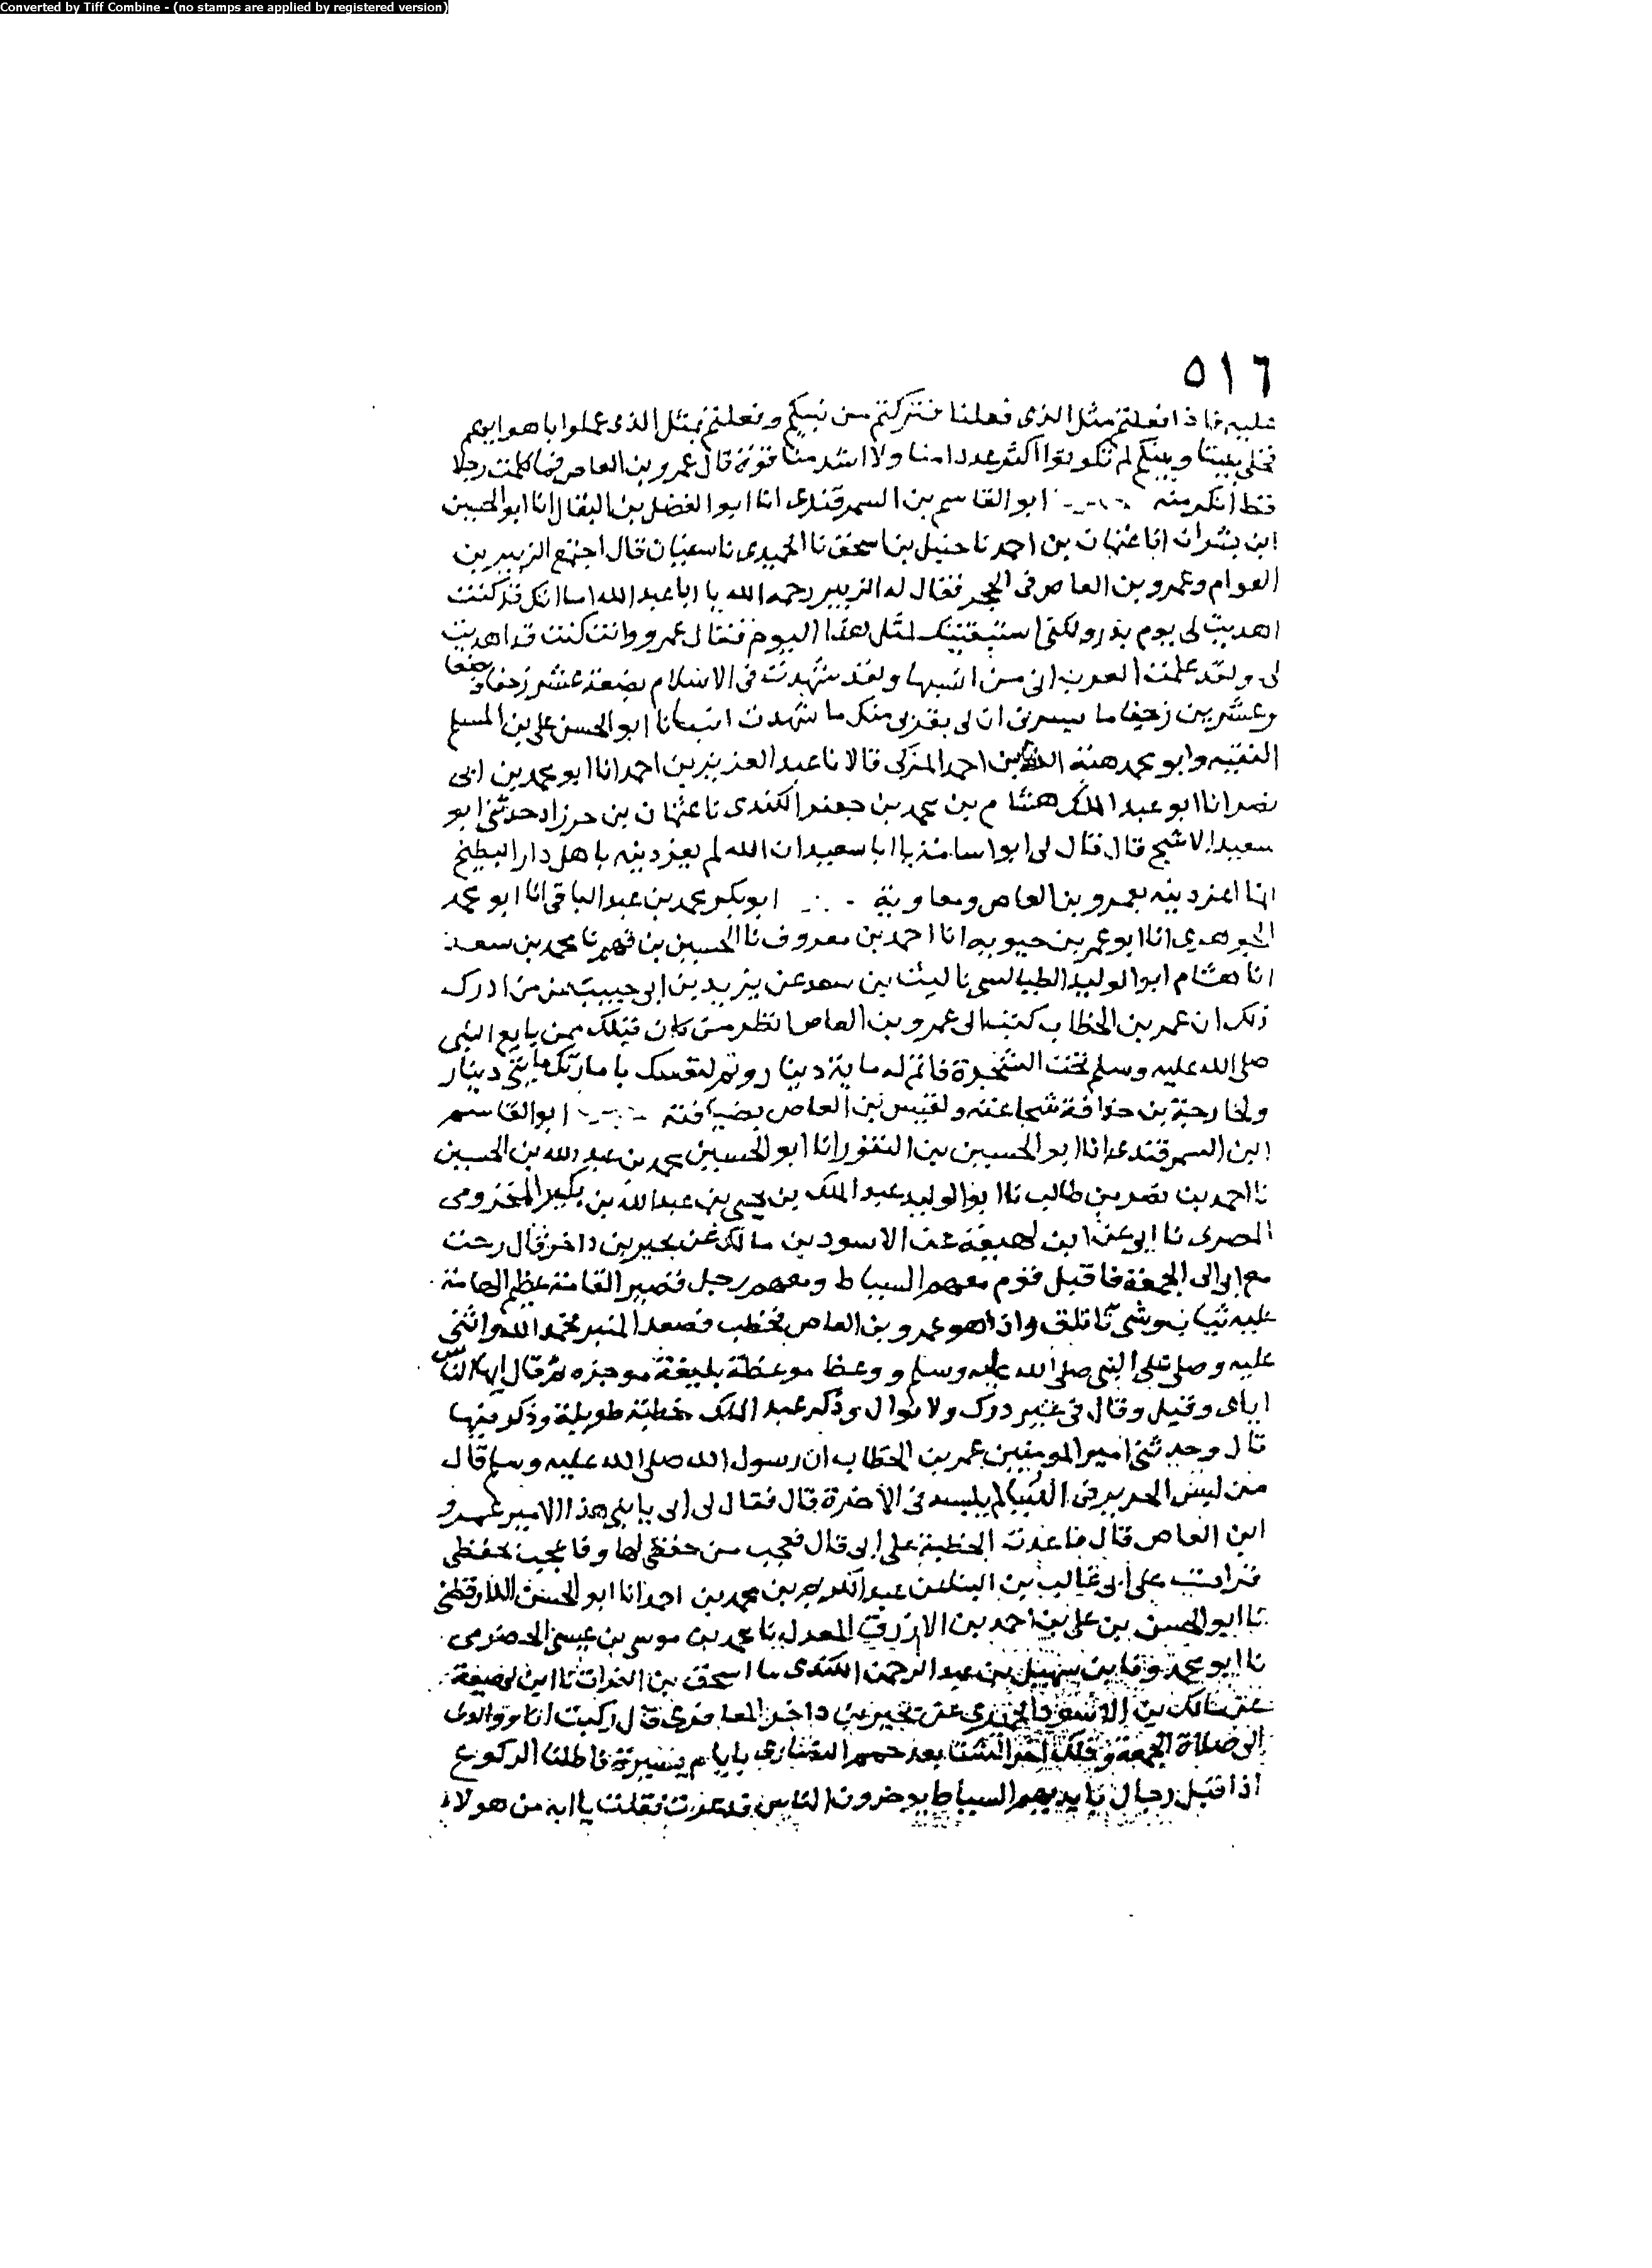 Converted by Tiff Combine - (no stamps are applied by registered version)
٥١٦
عليه فاذا فعلتم مثل الذى فعلنا فتركتم من نبيكم وفعلتم بمثل الذى عملوا باهوايهم
فخلى بيننا وبينكم لم تكونوا اكثر عددا منا ولا اشد منا قوة قال عمرو بن العاص فما كلمت رجلا
قط انكر منه ابو القاسم بن السمرقندى انا ابو الفضل بن البقال انا ابو الحسين
ابن بشران انا عثمان بن احمد نا حنبل بن اسحق نا الحميدى نا سفيان قال اجتمع الزبير بن
العوام وعمرو بن العاص فى الحجر فقال له الزبير رحمه الله يا ابا عبد الله اما انك قد كنت
اهديت لى يوم بدر ولكنى استبقيتك لمثل هذا اليوم فقال عمرو وانت كنت قد اهديت
لى ولقد علمت العرب انى من اشبها ولقد شهدت فى الاسلام بضعة عشر زحفا وبضعا
وعشرين زحفا ما يسرنى ان لى بقربى منك ما شهدت انبانا ابو الحسن على بن المسلم
الفقيه وابو محمد هبة الله بن احمد المزكى قالا نا عبد العزيز بن احمد انا ابو محمد بن ابى
نصر انا ابو عبد الملك هشام بن محمد بن جعفر الكندى نا عثمان بن حرزاد حدثنى ابو
سعيد الاشج قال قال لى ابو اسامة يا ابا سعيد ان الله لم يعز دينه باهل دار البطيخ
انما اعز دينه بعمرو بن العاص ومعاوية ابو بكر محمد بن عبد الباقى انا ابو محمد
الجوهرى انا ابو عمر بن حيويه انا احمد بن معروف نا الحسين بن فهم نا محمد بن سعد
انا هشام ابو الوليد الطيالسى نا ليث بن سعد عن يزيد بن ابى حبيب عن من ادرك
ذلك ان عمر بن الخطاب كتب الى عمرو بن العاص انظر من كان قبلك ممن بايع النبى
صلى الله عليه وسلم تحت الشجرة فاتم له ماية دينار وتم لنفسك بامارتك مايتى دينار
ولخارجة بن حذافة شجاعته ولقيس بن العاص بضيافته ابو القاسم
ابن السمرقندى انا ابو الحسين بن النقور انا ابو الحسين محمد بن عبد الله بن الحسين
نا احمد بن نصر بن طالب نا ابو الوليد عبد الملك بن يحيى بن عبد الله بن بكير المخزومى
المصرى نا ابى عن ابن لهيعة عن الاسود بن مالك عن بحير بن داخر قال رحت
مع ابى الى الجمعة فاقبل قوم معهم السياط ومعهم رجل قصير القامة عظيم الهامة
عليه ثياب وشى تاتلق واذا هو عمرو بن العاص يخطب فصعد المنبر فحمد الله واثنى
عليه وصلى على النبى صلى الله عليه وسلم ووعظ موعظة بليغة موجزه ثم قال ايها الناس
اياى وقيل وقال فى غير درك ولا نوال وذكر عبد الملك خطبة طويلة وذكر فيها
قال وحدثنى امير المومنين عمر بن الخطاب ان رسول الله صلى الله عليه وسلم قال
من لبس الحرير فى الدنيا لم يلبسه فى الاخرة قال فقال لى ابى يا بنى هذا الامير عمرو
ابن العاص قال فاعدت الخطبة على ابى قال فعجب من حفظى لها وفا عجب بحفظى
قرات على ابى غالب بن البنا عن عبد الكريم بن محمد بن احمد انا ابو الحسن الدارقطنى
نا ابو الحسن بن على بن احمد بن الازرق المعدل نا محمد بن موسى بن عيسى الحضرمى
نا ابو محمد وفا بن سهيل بن عبد الرحمن الكندى نا اسحق بن الفرات نا ابن لهيعة
عن مالك بن الاسود عن بحير بن داخر المعافرى قال ركبت انا ووالدى
الى صلاة الجمعة وذلك اخر الشتا بعد حميم النصارى بايام يسيرة فاطلنا الركوع
اذا قبل رجال بايديهم السياط يوخرون الناس فدعرت فقلت يا ابه من هولاء